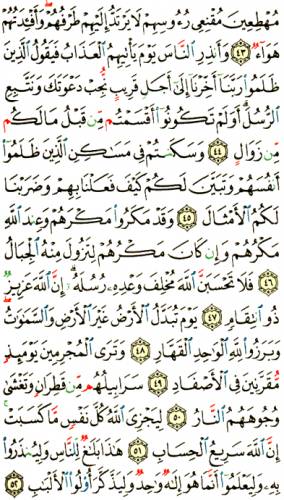 مُهْطِعِينَ مُقْنِعِى رُءُوسِهِمْ لَا يَرْتَدُّ إِلَيْهِمْ طَرْفُهُمْ وَأَفْـِٔدَتُهُمْ
هَوَآءٌ ٤٣ وَأَنذِرِ ٱلنَّاسَ يَوْمَ يَأْتِيهِمُ ٱلْعَذَابُ فَيَقُولُ ٱلَّذِينَ
ظَلَمُوا۟ رَبَّنَآ أَخِّرْنَآ إِلَىٰٓ أَجَلٍ قَرِيبٍ نُّجِبْ دَعْوَتَكَ وَنَتَّبِعِ
ٱلرُّسُلَ أَوَلَمْ تَكُونُوٓا۟ أَقْسَمْتُم مِّن قَبْلُ مَا لَكُم
مِّن زَوَالٍ ٤٤ وَسَكَنتُمْ فِى مَسَـٰكِنِ ٱلَّذِينَ ظَلَمُوٓا۟
أَنفُسَهُمْ وَتَبَيَّنَ لَكُمْ كَيْفَ فَعَلْنَا بِهِمْ وَضَرَبْنَا
لَكُمُ ٱلْأَمْثَالَ ٤٥ وَقَدْ مَكَرُوا۟ مَكْرَهُمْ وَعِندَ ٱللَّهِ
مَكْرُهُمْ وَإِن كَانَ مَكْرُهُمْ لِتَزُولَ مِنْهُ ٱلْجِبَالُ
٤٦ فَلَا تَحْسَبَنَّ ٱللَّهَ مُخْلِفَ وَعْدِهِۦ رُسُلَهُۥٓ إِنَّ ٱللَّهَ عَزِيزٌ
ذُو ٱنتِقَامٍ ٤٧ يَوْمَ تُبَدَّلُ ٱلْأَرْضُ غَيْرَ ٱلْأَرْضِ وَٱلسَّمَـٰوَٰتُ
وَبَرَزُوا۟ لِلَّهِ ٱلْوَٰحِدِ ٱلْقَهَّارِ ٤٨ وَتَرَى ٱلْمُجْرِمِينَ يَوْمَئِذٍ
مُّقَرَّنِينَ فِى ٱلْأَصْفَادِ ٤٩ سَرَابِيلُهُم مِّن قَطِرَانٍ وَتَغْشَىٰ
وُجُوهَهُمُ ٱلنَّارُ ٥٠ لِيَجْزِىَ ٱللَّهُ كُلَّ نَفْسٍ مَّا كَسَبَتْ
إِنَّ ٱللَّهَ سَرِيعُ ٱلْحِسَابِ ٥١ هَـٰذَا بَلَـٰغٌ لِّلنَّاسِ وَلِيُنذَرُوا۟
بِهِۦ وَلِيَعْلَمُوٓا۟ أَنَّمَا هُوَ إِلَـٰهٌ وَٰحِدٌ وَلِيَذَّكَّرَ أُو۟لُوا۟ ٱلْأَلْبَـٰبِ ٥٢